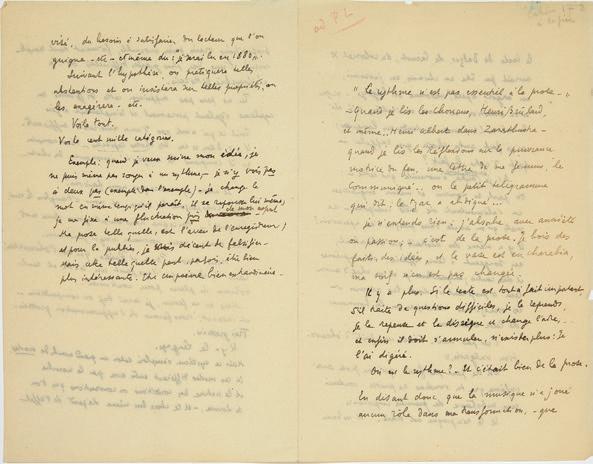 visé, du besoin à satisfaire du lecteur que l'on
guigne - etc - et même du: j'serai lu en 1880..
Suivant l'hypothèse, on pratiquera telles
abstentions et on insistera sur telles propriétés, on
les exagérera - etc.
Voilà tout.
Voilà cent mille catégories.
Exemple: quand je veux suivre mon idée, je
ne puis même pas songer à un rythme, - je n'y vois pas
à deux pas (exemple dans l'exemple) - je change le
mot en même temps qu'il paraît, il se repousse lui même,
je me fixe à une fluctuation
de mon esprit
Ma prose telle quelle, est l'aveu de l'
et pour la publier, je décent de falsifier -
Mais cette telle quelle peut, parfois, être bien
plus intéressante. Etre
ad P L
"Le rythme n'est pas essentiel à la prose -"
- Quand je lis les Chouans, Henri Brulard,
et même.. Henri Albert dans Zarathustra -
quand je lis les Réflexions sur la puissance
motrice du feu, une lettre de me femme, le
communiqué.., ou le petit télégramme
qui dit: le Tzar a abdiqué...
je n'entends rien: j'absorbe avec anxiété
ou passion, - c'est de la prose. Je bois des
faits, des idées, et le vase est en charabia,
ma soif n'en est pas changée.
Il y a plus. Si le texte est tout à fait important,
s'il traite de questions difficiles, je le reprends,
je le repense et le dissèque et change l'ordre, -
et enfin il doit s'annuler, n'exister plus: Je
l'ai digéré.
Où est le rythme? - Et c'était bien de la prose.
En disant donc, que la musique n'a joué
aucun rôle dans ma transformation, - que